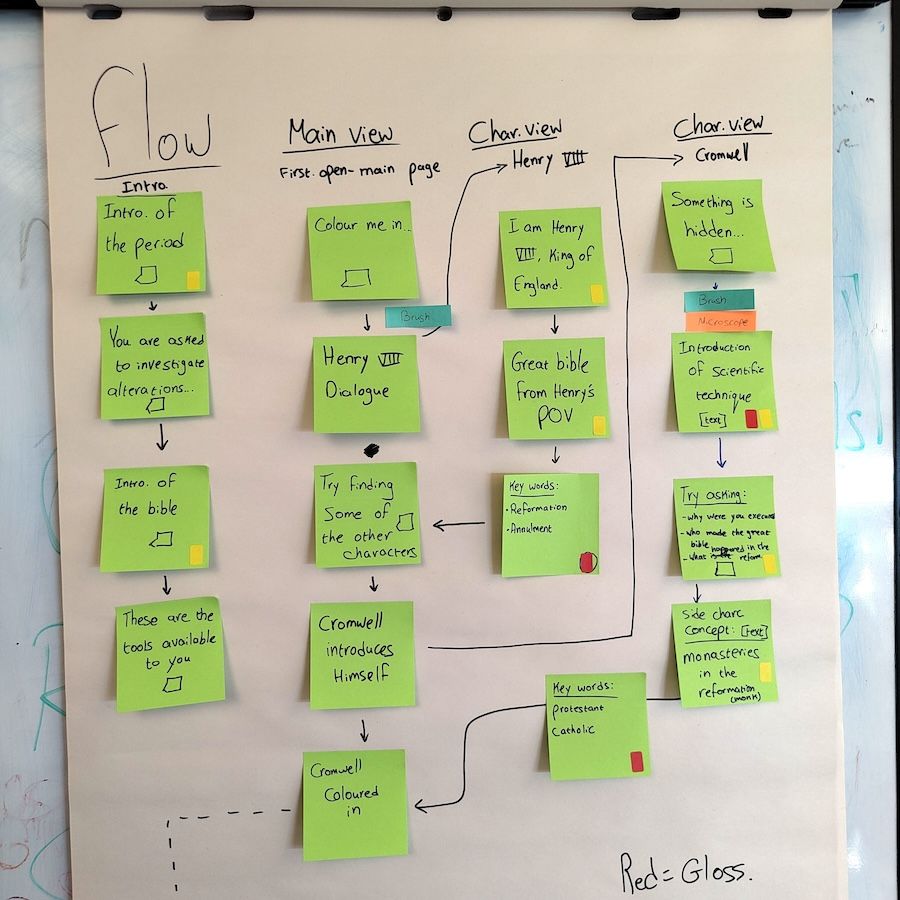 Flow
Intro.
Intro. of
the period
You are asked
to investigate
alterations...
Intro. of
the bible
These are the
tools available
to you
Main view
First. open- main page
Colour me in...
Brush
Henry VIII
Dialogue
Try finding
Some of
the other
characters
Cromwell
introduces
Himself
Cromwell
Coloured
in
Char. view
Henry VIII
I am Henry
VIII, King of
England.
Great bible
from Henry's
POV
Key words:
-Reformation
-Annulment
Char. view
Cromwell
Something is
hidden...
Brush
Microscope
Introduction
of scientific
technique
[text]
Try asking:
- why were you execu
- who made the great
bible
- What happened in the
reform
Side charc
concept: [text]
monasteries
in the
reformation
(monk)
Key words:
protestant
Catholic
Red = Gloss.